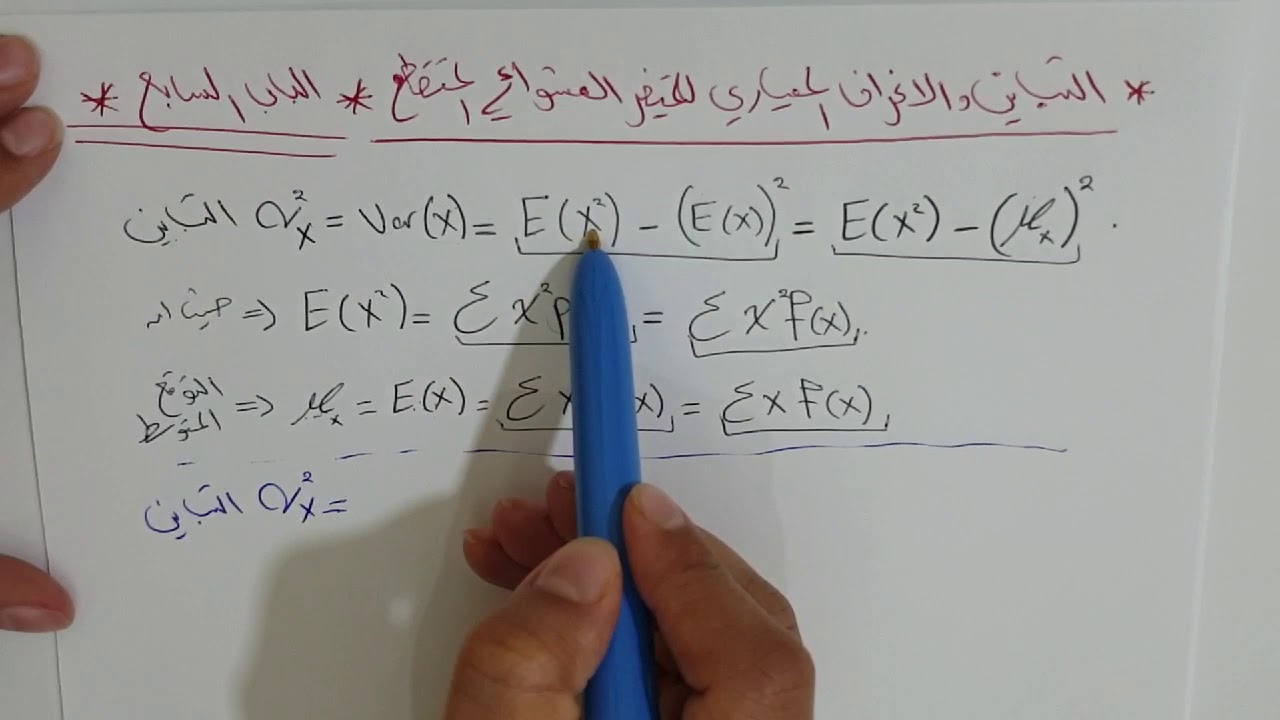 * التباين والانحراف المعياري للمتغير العشوائي المتقطع * الباب السابع *
التباين σ²ₓ = Var(X) = E(X²) − (E(X))² = E(X²) − (μₓ)².
حيث ان ⇒ E(X²) = Σ x² p = Σ x² f(x).
التوقع المتوسط ⇒ μₓ = E(X) = Σ x (x) = Σ x f(x)
التباين σ²ₓ =